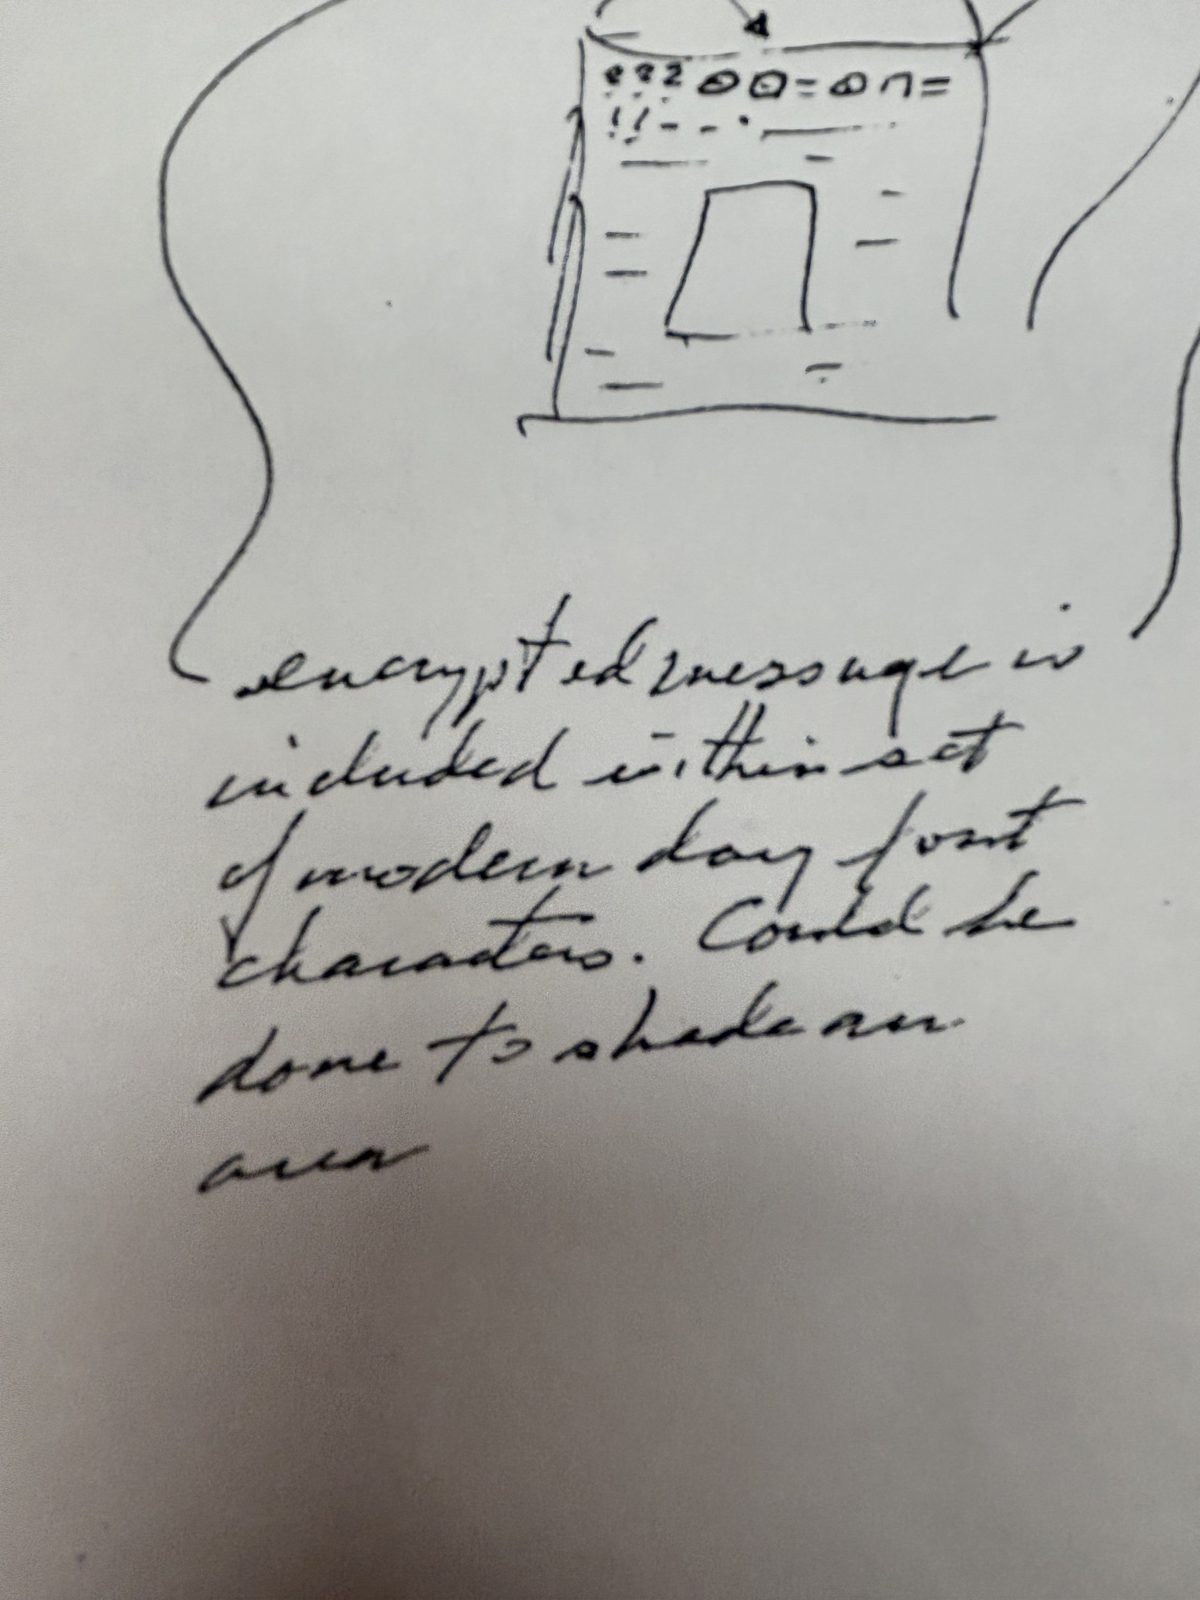 encrypted message is
included within set
of modern day font
characters. Could be
done to shade an
area